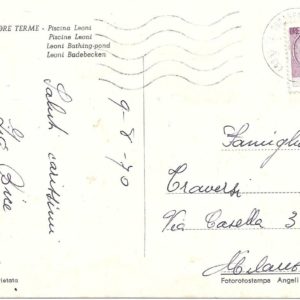 ORE TERME - Piscina Leoni
Piscine Leoni
Leoni Bathing-pond
Leoni Badebecken
9-8-70
Saluti carissimi
Famigli
Traversi
Via Casella 3
Milano
Fotorotostampa Angeli